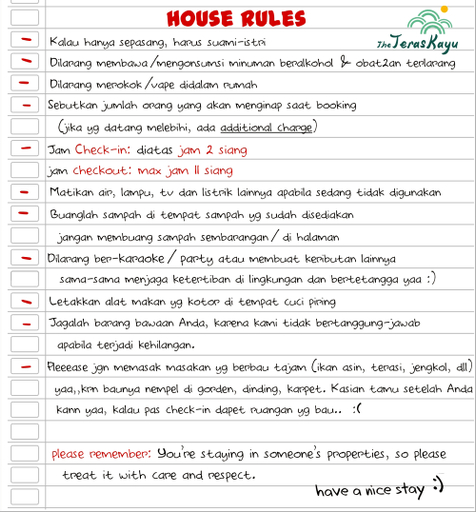 HOUSE RULES
The TerasKayu
- Kalau hanya sepasang, harus suami-istri
- Dilarang membawa/mengonsumsi minuman beralkohol & obat2an terlarang
- Dilarang merokok/vape didalam rumah
- Sebutkan jumlah orang yang akan menginap saat booking
(jika yg datang melebihi, ada additional charge)
- Jam Check-in: diatas jam 2 siang
jam checkout: max jam 11 siang
- Matikan air, lampu, tv dan listrik lainnya apabila sedang tidak digunakan
- Buanglah sampah di tempat sampah yg sudah disediakan
jangan membuang sampah sembarangan/ di halaman
- Dilarang ber-karaoke / party atau membuat keributan lainnya
sama-sama menjaga ketertiban di lingkungan dan bertetangga yaa :)
- Letakkan alat makan yg kotor di tempat cuci piring
- Jagalah barang bawaan Anda, karena kami tidak bertanggung-jawab
apabila terjadi kehilangan.
- Pleeease jgn memasak masakan yg berbau tajam (ikan asin, terasi, jengkol, dll)
yaa,,krn baunya nempel di gorden, dinding, karpet. Kasian tamu setelah Anda
kann yaa, kalau pas check-in dapet ruangan yg bau.. :(
please remember: You're staying in someone's properties, so please
treat it with care and respect.
have a nice stay :)